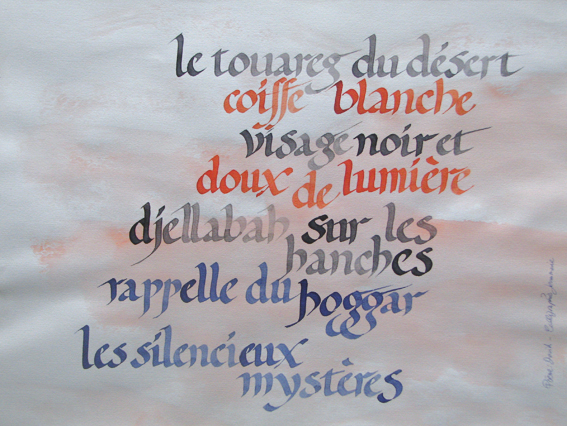 le touareg du désert
coiffe blanche
visage noir et
doux de lumière
djellabah sur les
hanches
rappelle du hoggar
les silencieux
mystères